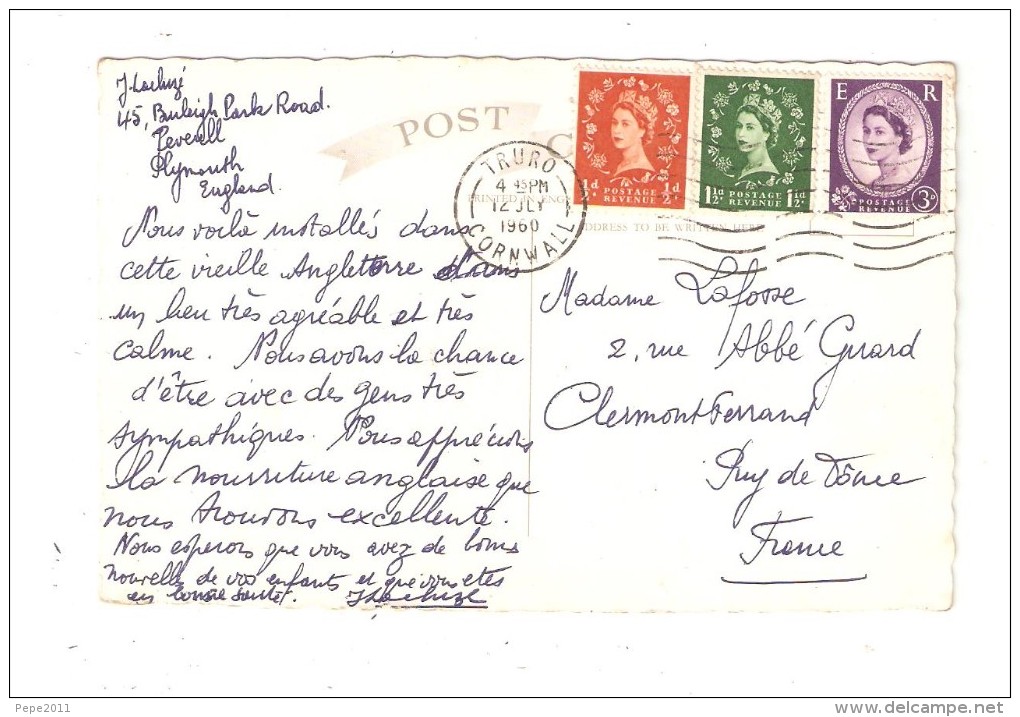 45, Burleigh Park Road.
Peverell
Plymouth
England.
Nous voilà installés dans
cette vieille Angleterre dans
un lieu très agréable et très
calme. Nous avons la chance
d'être avec des gens très
sympathiques. Nous apprécions
la nourriture anglaise que
nous trouvons excellente.
Nous esperons que vous avez de bonnes
nouvelles de vos enfants et que vous etes
en bonne santé.
POST C
PRINTED IN ENG
ADDRESS TO BE WRITTEN HERE
TRURO
4 45 PM
12 JLY
1960
CORNWALL
½d. POSTAGE REVENUE ½d.
1½d. POSTAGE REVENUE 1½d.
E R
POSTAGE REVENUE 3D
Madame Lafosse
2, rue Abbé Girard
Clermont Ferrand
Puy de Dôme
France
Pepe2011
www.delcampe.net